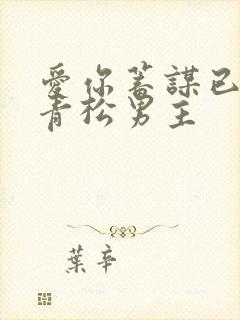 愛你蓄謀已
青松男主
葉辛